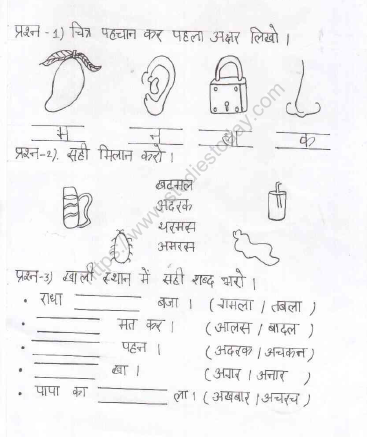 प्रश्न -1) चित्र पहचान कर पहला अक्षर लिखो ।
न
क
प्रश्न-2). सही मिलान करो ।
खटमल
अदरक
थरमस
अमरस
प्रश्न-3) खाली स्थान में सही शब्द भरो ।
• राधा ______ बजा । (गमला / तबला )
• ______ मत कर । (आलस / बादल )
• ______ पहन । (अदरक / अचकन )
• ______ खा । (अगर / अनार )
• पापा का ______ ला । ( अखबार / अचरच )
https://www.studiestoday.com